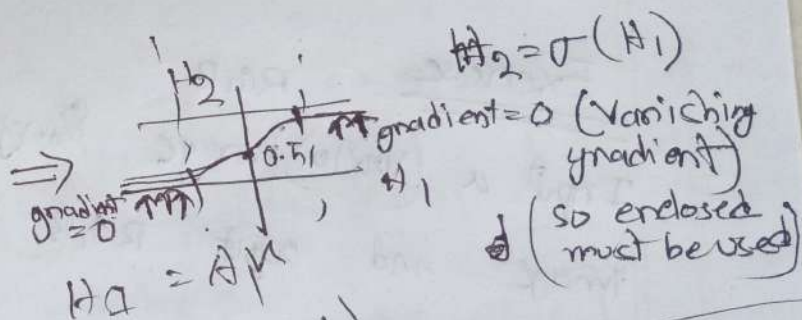 H2 = σ(H1)
H2
gradient = 0 (Vanishing
gradient)
⇒
0.5
H1
gradient
= 0
(so enclosed
must be used)